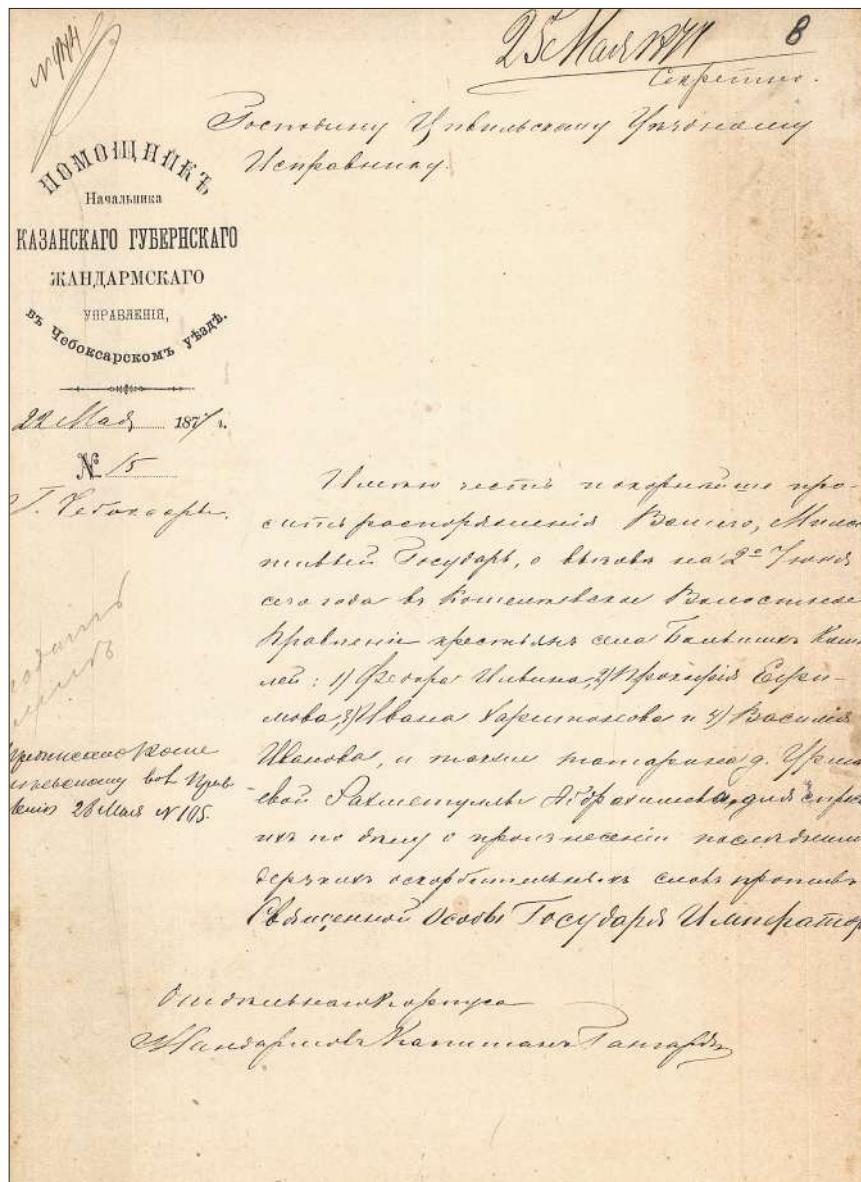 25 Мая 1877
8
Секретно.
Господину Цивильскому Уѣздному
Исправнику.
ПОМОЩНИКЪ
Начальника
КАЗАНСКАГО ГУБЕРНСКАГО
ЖАНДАРМСКАГО
УПРАВЛЕНІЯ,
въ Чебоксарскомъ уѣздѣ.
22 Мая 1877 г.
№ 15
Г. Чебоксары.
Имѣю честь покорнѣйше про-
сить распоряженія Вашего, Милос
тивый Государь, о вызовѣ на 2е Іюня
сего года въ Кошелеевское Волостное
Правленіе крестьянъ села Большихъ Кош
лей: 1) Федора Ильина, 2) Прокофія Ефи-
мова, 3) Ивана Харитонова и 4) Василія
Иванова, и также татарина д. Урма
евой Рахметуллы Абдрахимова, для
ихъ по дѣлу о произнесеніи послѣднимъ
дерзкихъ оскорбительныхъ словъ противъ
Священной Особы Государя Императора
Отдѣльнаго Корпуса
Жандармовъ Капитанъ
Предписано Коше
леевскому Вол. Прав
ленію 26 Мая № 105.